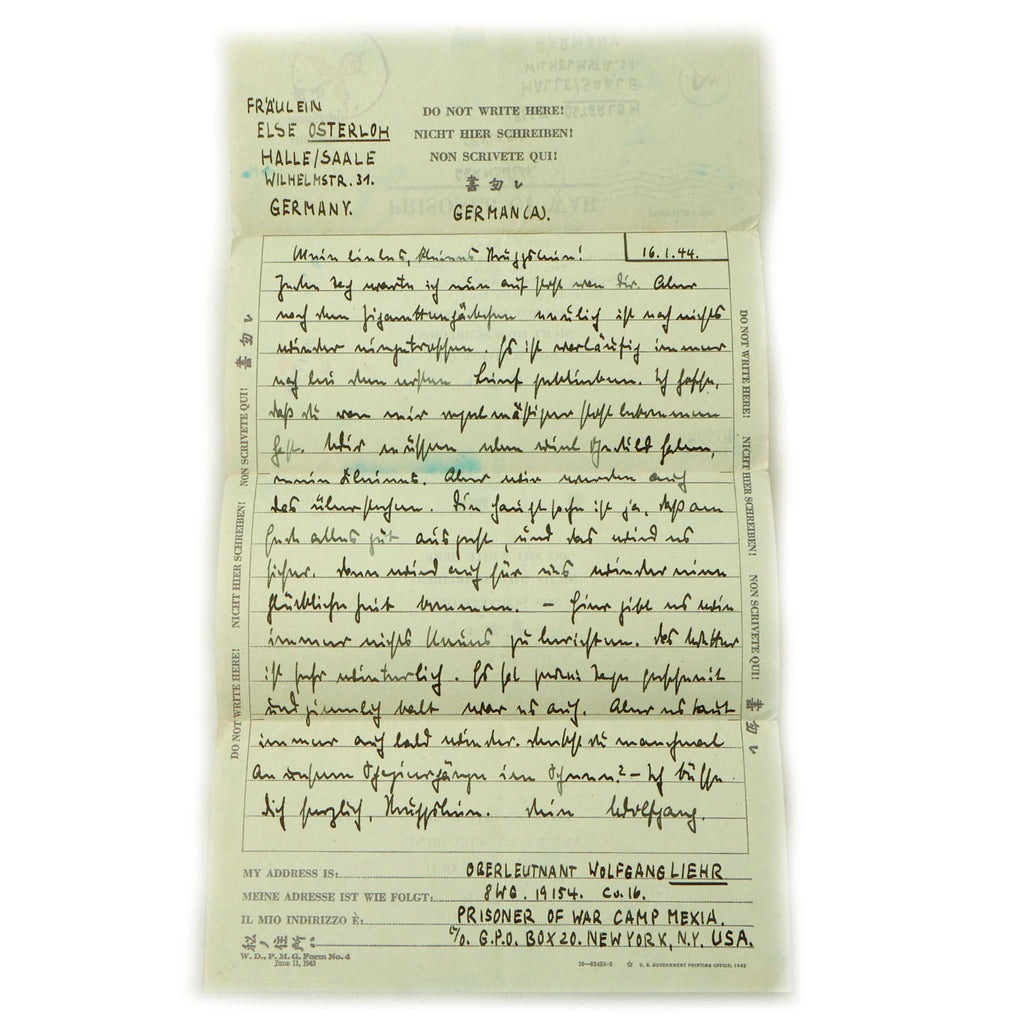 FRÄULEIN
ELSE OSTERLOH
HALLE/SAALE
WILHELMSTR. 31.
GERMANY.
DO NOT WRITE HERE!
NICHT HIER SCHREIBEN!
NON SCRIVETE QUI!
書勿レ
GERMAN(A).
16.1.44.
Mein liebes, kleines
Jeden Tag warte ich nun auf Post von Dir. Aber
nach dem neulich ist noch nichts
wieder eingetroffen. Es ist vorläufig immer
noch bei dem ersten Brief geblieben. Ich hoffe,
daß du von mir regelmäßiger Post bekommen
hast. Wir müssen eben viel Geduld haben,
mein Kleines. Aber wir werden auch
das überstehen. Die Hauptsache ist ja, daß am
Ende alles gut ausgeht, und das wird es
sicher. Dann wird auch für uns wieder eine
glückliche Zeit kommen. – Hier gibt es wie
immer nichts Neues zu berichten. Das Wetter
ist sehr winterlich. Es hat Tage geschneit
und ziemlich kalt war es auch. Aber es taut
immer auch bald wieder. Denkst du manchmal
an unsere Spaziergänge im Schnee? – Ich küsse
Dich herzlich, Dein Wolfgang.
DO NOT WRITE HERE! NICHT HIER SCHREIBEN! NON SCRIVETE QUI! 書勿レ
DO NOT WRITE HERE! NICHT HIER SCHREIBEN! NON SCRIVETE QUI! 書勿レ
MY ADDRESS IS: OBERLEUTNANT WOLFGANG LIEHR
MEINE ADRESSE IST WIE FOLGT: 8WG. 19154. Co. 16.
IL MIO INDIRIZZO È: PRISONER OF WAR CAMP MEXIA.
私ノ住所ハ C/O. G.P.O. BOX 20. NEW YORK, N.Y. USA.
W. D., P. M. G. Form No. 4
June 11, 1943
U. S. GOVERNMENT PRINTING OFFICE: 1943